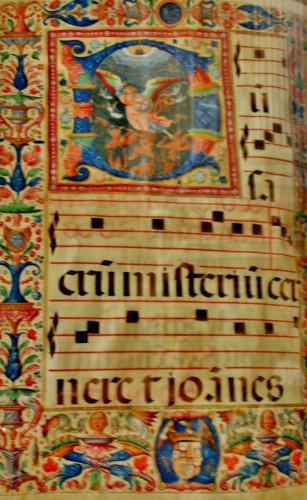 Dū
sa
crū misteriū cer
neret joānes